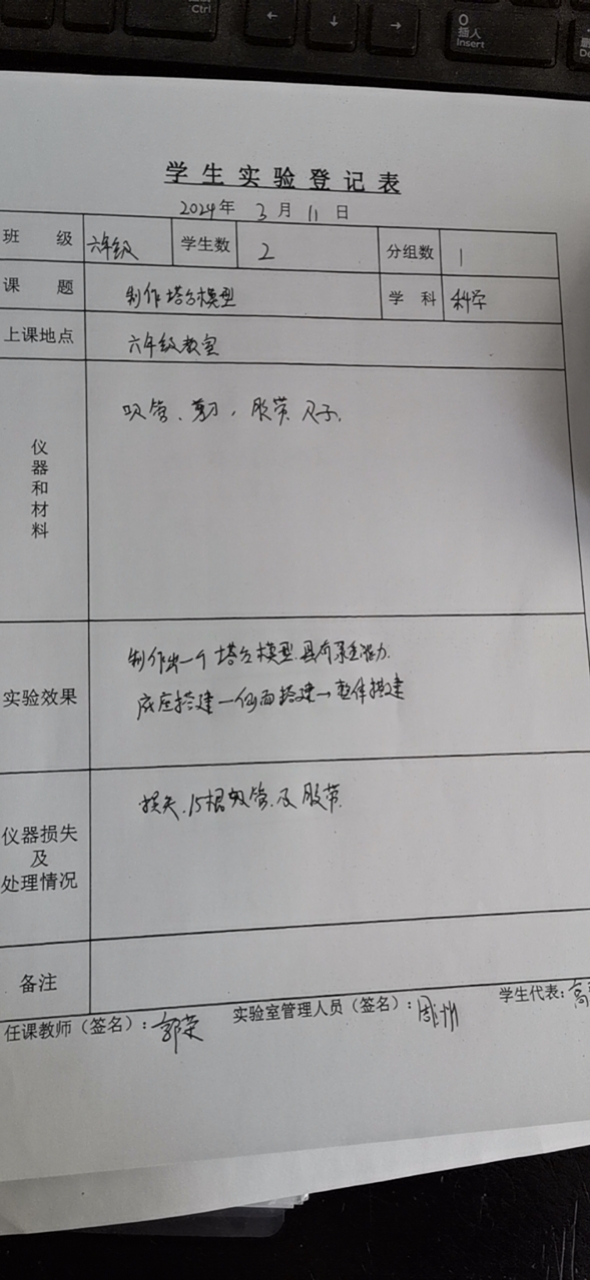 Ctrl
←
↓
→
0
插人
Insert
学生实验登记表
2024年 3月 11日
班 级 六年级 学生数 2 分组数 1
课 题 制作塔台模型 学 科 科学
上课地点 六年级教室
仪器和材料 吸管、剪刀, 胶带、尺子.
实验效果 制作出一个塔台模型.具有承重能力.
底座搭建—侧面搭建→整体搭建
仪器损失
及
处理情况
损失.15根吸管.及胶带.
备注
任课教师(签名): 郭荣 实验室管理人员(签名): 周州 学生代表: 高